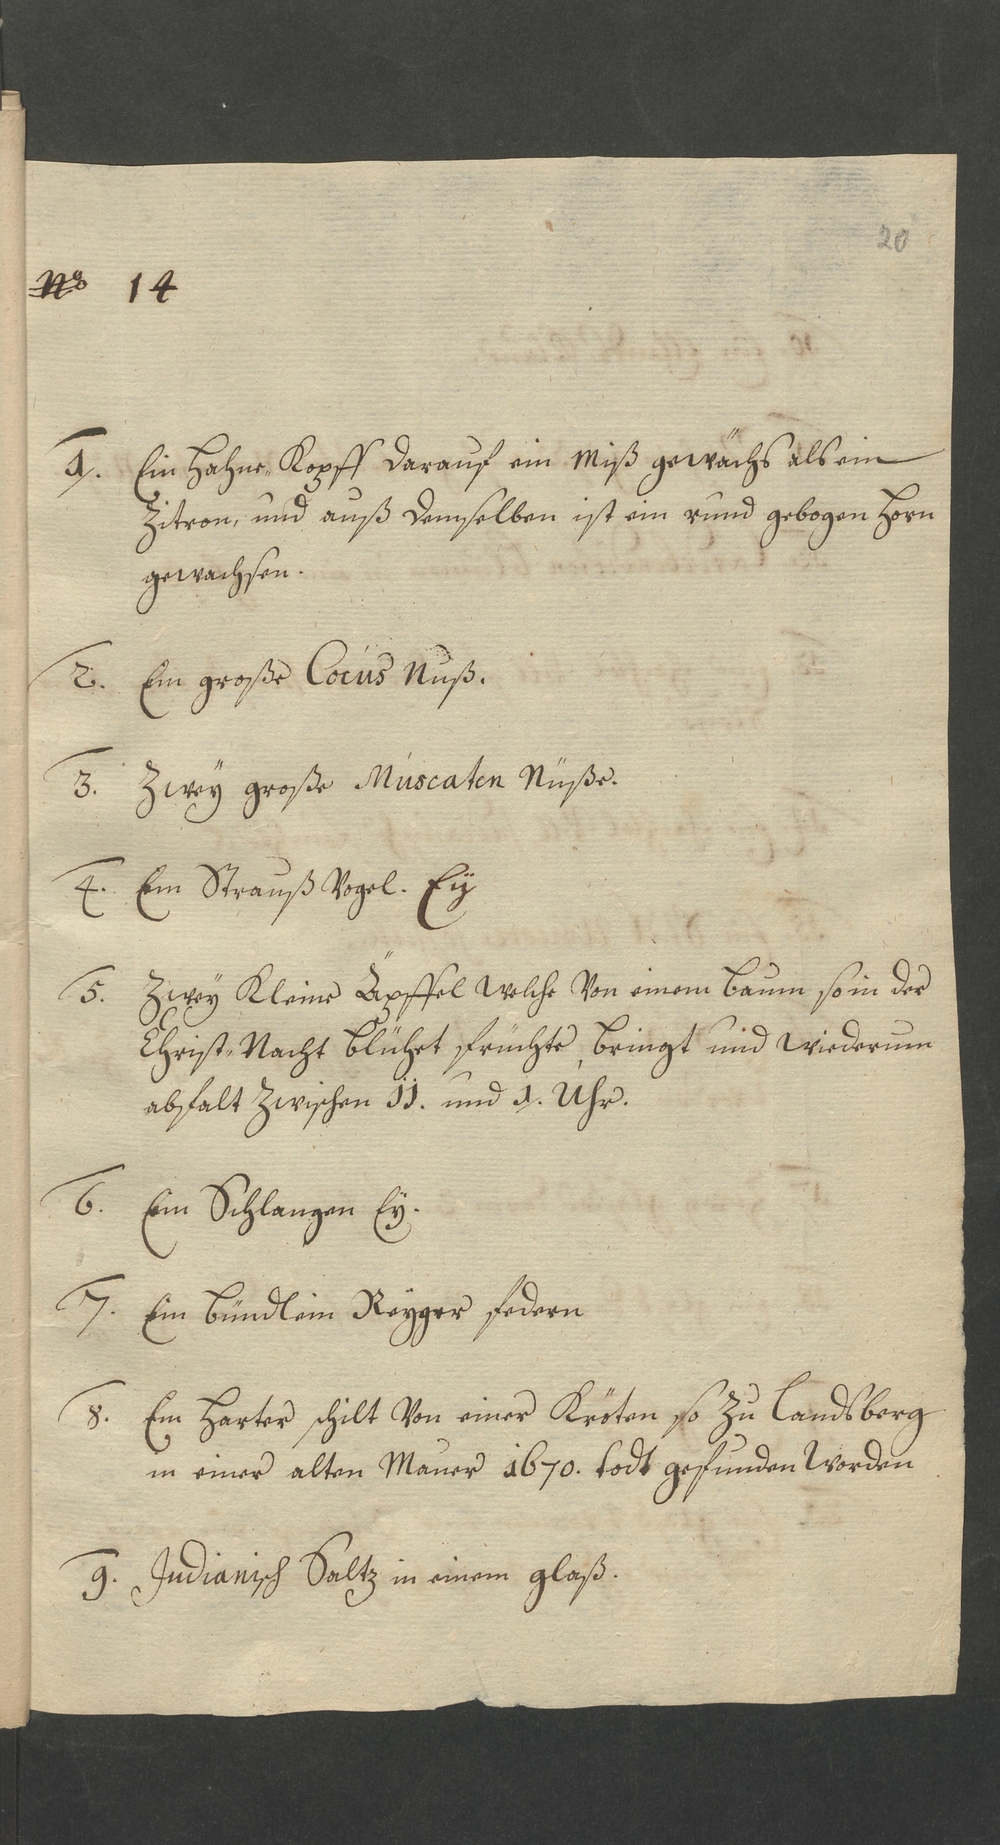 20
No 14
1. Ein Hahne-Kopff darauf ein Miß gewächs als ein
Zitron, und auß demselben ist ein rund gebogen Horn
gewachsen.
2. Ein große Cocus Nuß.
3. Zwey große Muscaten Nüße.
4. Ein Strauß Vogel. Ey
5. Zwey Kleine Äpffel welche Von einem Baum so in der
Christ-Nacht blühet früchte, bringt und wiederum
abfalt Zwischen 11. und 1. Uhr.
6. Ein Schlangen Ey.
7. Ein bündlein Reyger federn
8. Ein harter schilt Von einer Kröten so Zu Landsberg
in einer alten Mauer 1670. todt gefunden Worden
9. Indianisch Saltz in einem glaß.